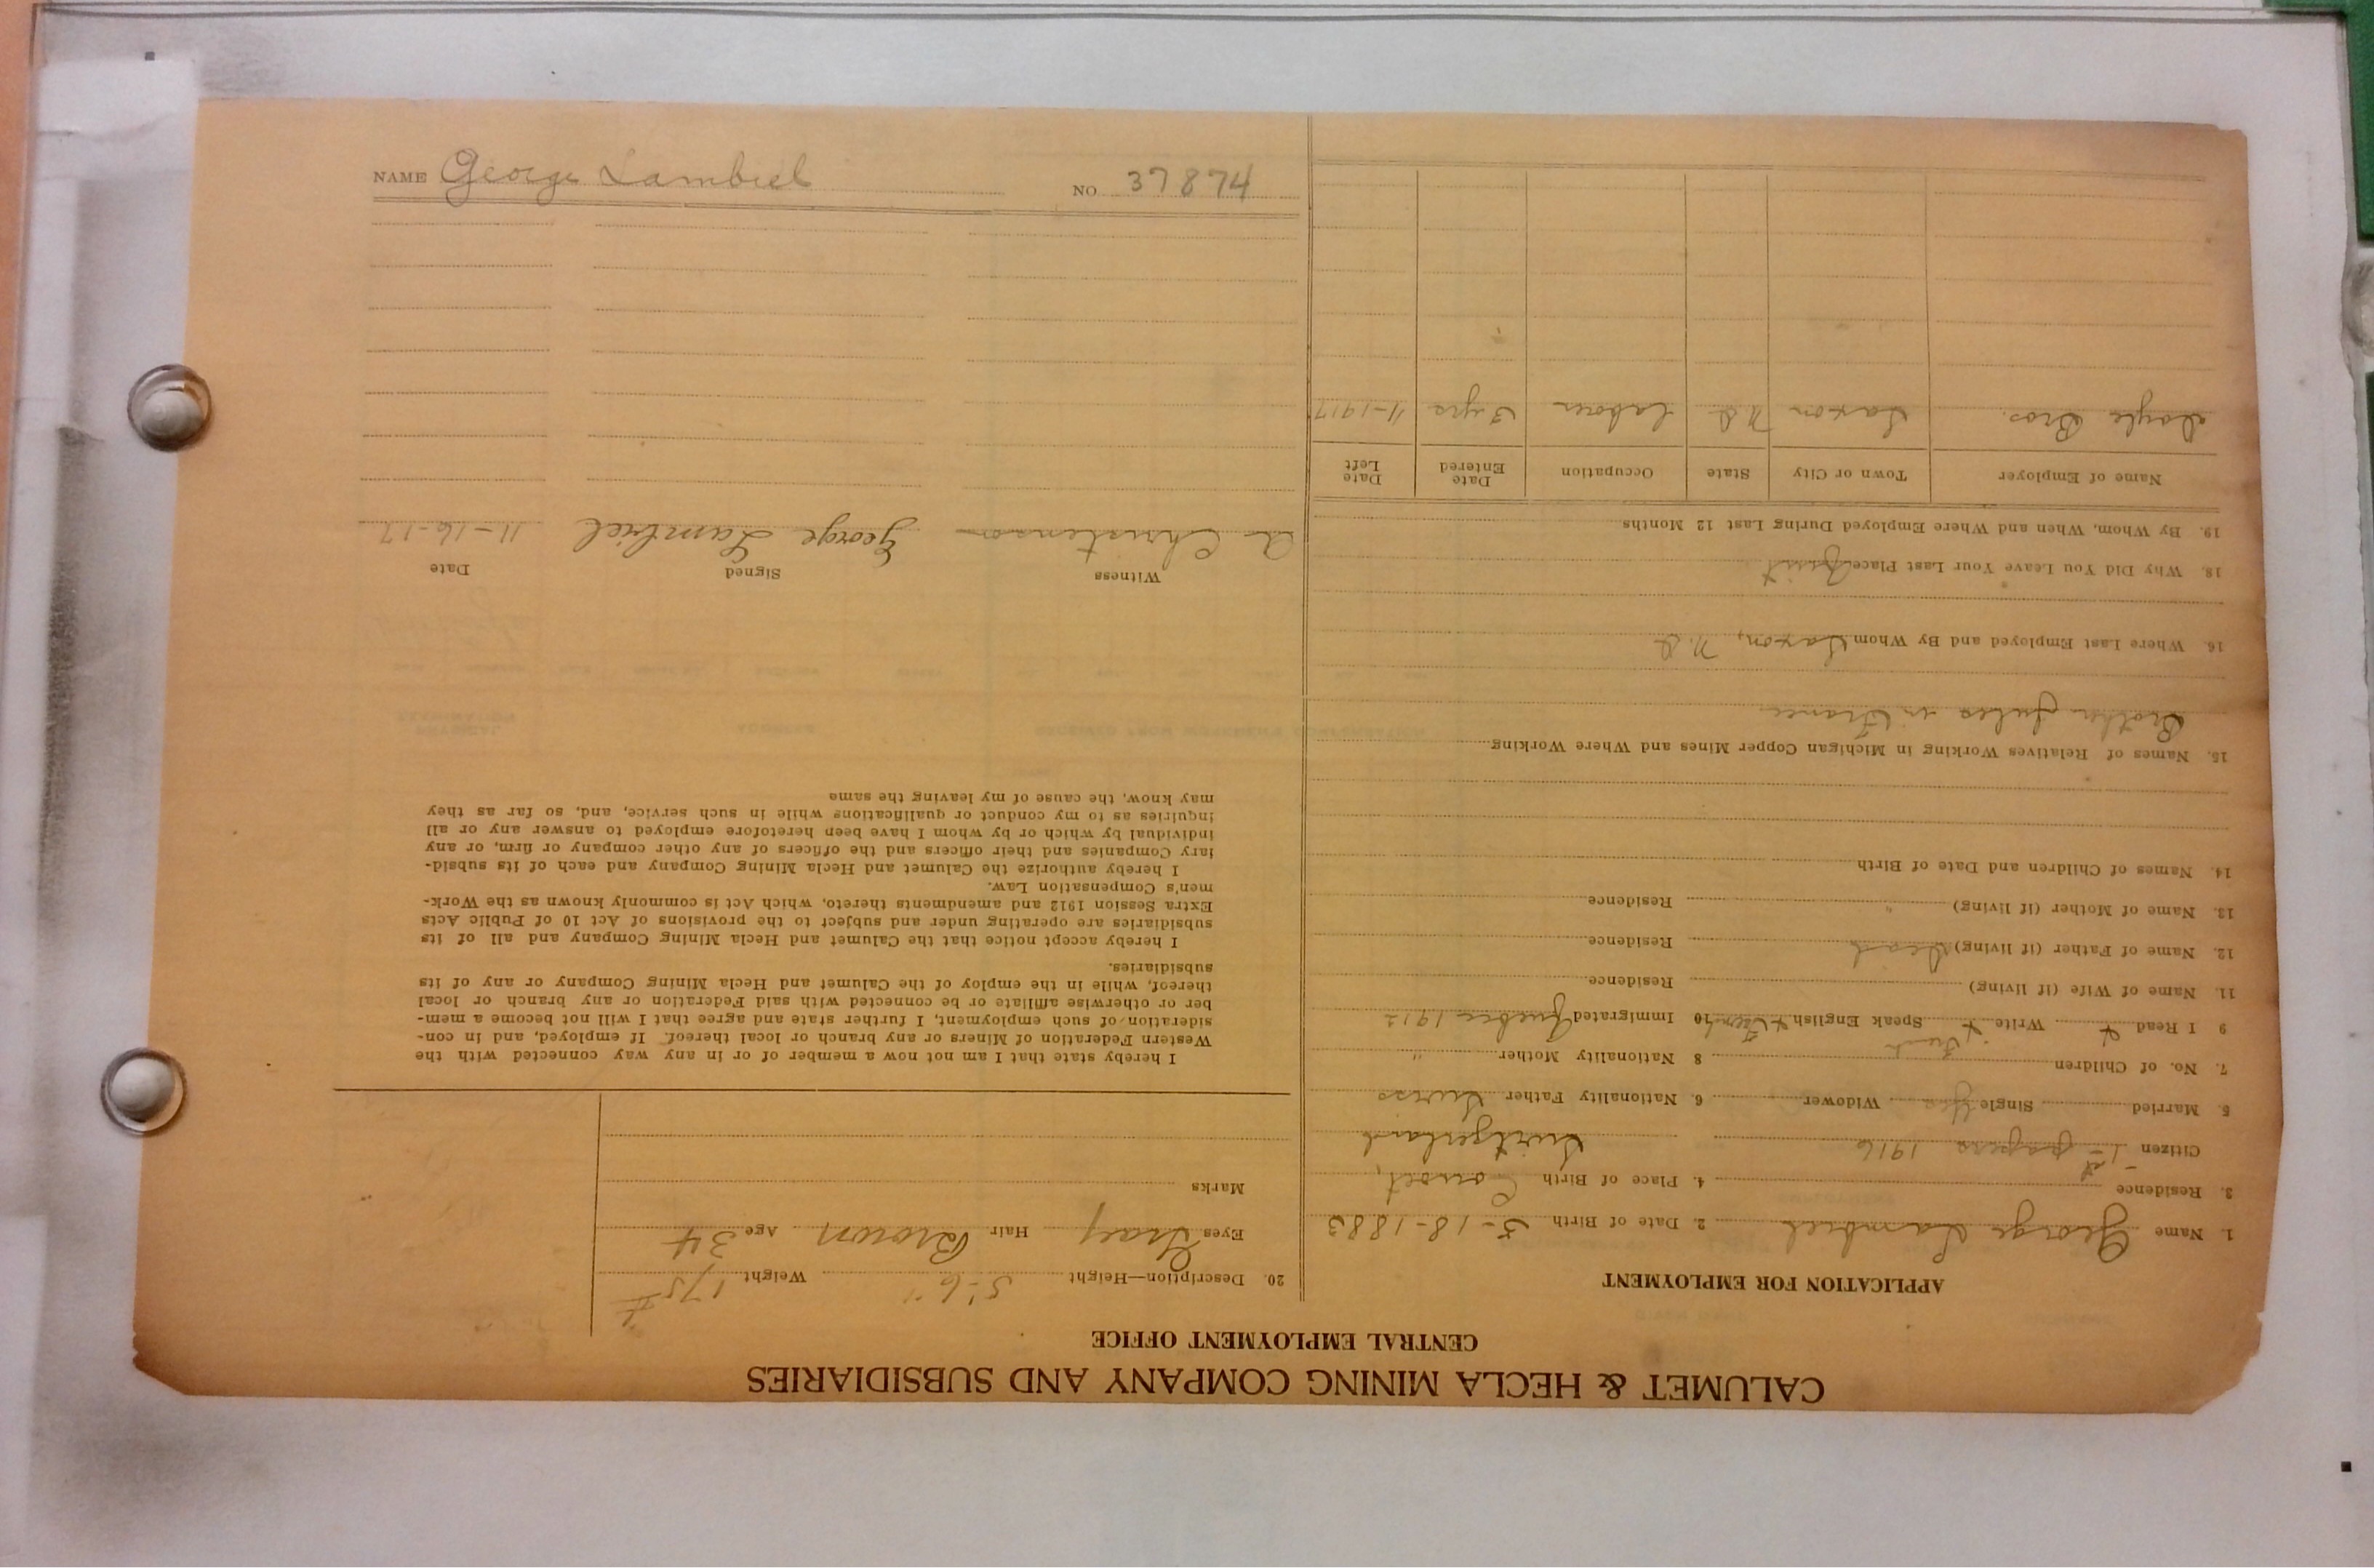 NAME George Lambiel NO. 37874
CALUMET & HECLA MINING COMPANY AND SUBSIDIARIES
CENTRAL EMPLOYMENT OFFICE
APPLICATION FOR EMPLOYMENT
1. Name George Lambiel 2. Date of Birth 5-18-1883
3. Residence 4. Place of Birth
Citizen 1st papers 1916 Switzerland
5. Married Single Yes Widower 6. Nationality Father Swiss
7. No. of Children 8 Nationality Mother "
French
9 I Read + Write + Speak English + French 10 Immigrated Quebec 1912
11. Name of Wife (if living) Residence
12. Name of Father (if living) Dead Residence
13. Name of Mother (if living) " Residence
14. Names of Children and Date of Birth
15. Names of Relatives Working in Michigan Copper Mines and Where Working
Brother Jules in France
16. Where Last Employed and By Whom Saxon, N.D.
18. Why Did You Leave Your Last Place Quit
19. By Whom, When and Where Employed During Last 12 Months
Name of Employer Town or City State Occupation Date Entered Date Left
Doyle Bros. Saxon N.D. Laborer 3 yrs 11-1917
20. Description—Height 5'-6" Weight 175#
Eyes Gray Hair Brown Age 34
Marks
I hereby state that I am not now a member of or in any way connected with the
Western Federation of Miners or any branch or local thereof. If employed, and in con-
sideration of such employment, I further state and agree that I will not become a mem-
ber or otherwise affiliate or be connected with said Federation or any branch or local
thereof, while in the employ of the Calumet and Hecla Mining Company or any of its
subsidiaries.
I hereby accept notice that the Calumet and Hecla Mining Company and all of its
subsidiaries are operating under and subject to the provisions of Act 10 of Public Acts
Extra Session 1912 and amendments thereto, which Act is commonly known as the Work-
men's Compensation Law.
I hereby authorize the Calumet and Hecla Mining Company and each of its subsid-
iary Companies and their officers and the officers of any other company or firm, or any
individual by which or by whom I have been heretofore employed to answer any or all
inquiries as to my conduct or qualifications while in such service, and, so far as they
may know, the cause of my leaving the same
Witness Signed Date
A Christenson George Lambiel 11-16-17